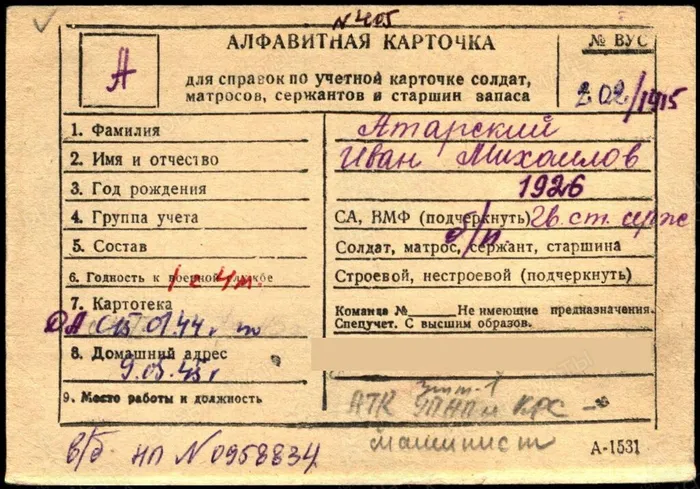 N 405
АЛФАВИТНАЯ КАРТОЧКА
№ ВУС
А
для справок по учетной карточке солдат,
матросов, сержантов и старшин запаса
202/1915
1. Фамилия Атарский
2. Имя и отчество Иван Михаилов
3. Год рождения 1926
4. Группа учета СА, ВМФ (подчеркнуть) Гв. ст. серж
5. Состав Солдат, матрос, сержант, старшина
6. Годность к военной службе
Строевой, нестроевой (подчеркнуть)
7. Картотека
Команда №______ Не имеющие предназначения.
Спецучет. С высшим образов.
01.44 г.
8. Домашний адрес
9.05.45г
9. Место работы и должность АТК КРС
машинист
в/б НП N 0958834
А-1531